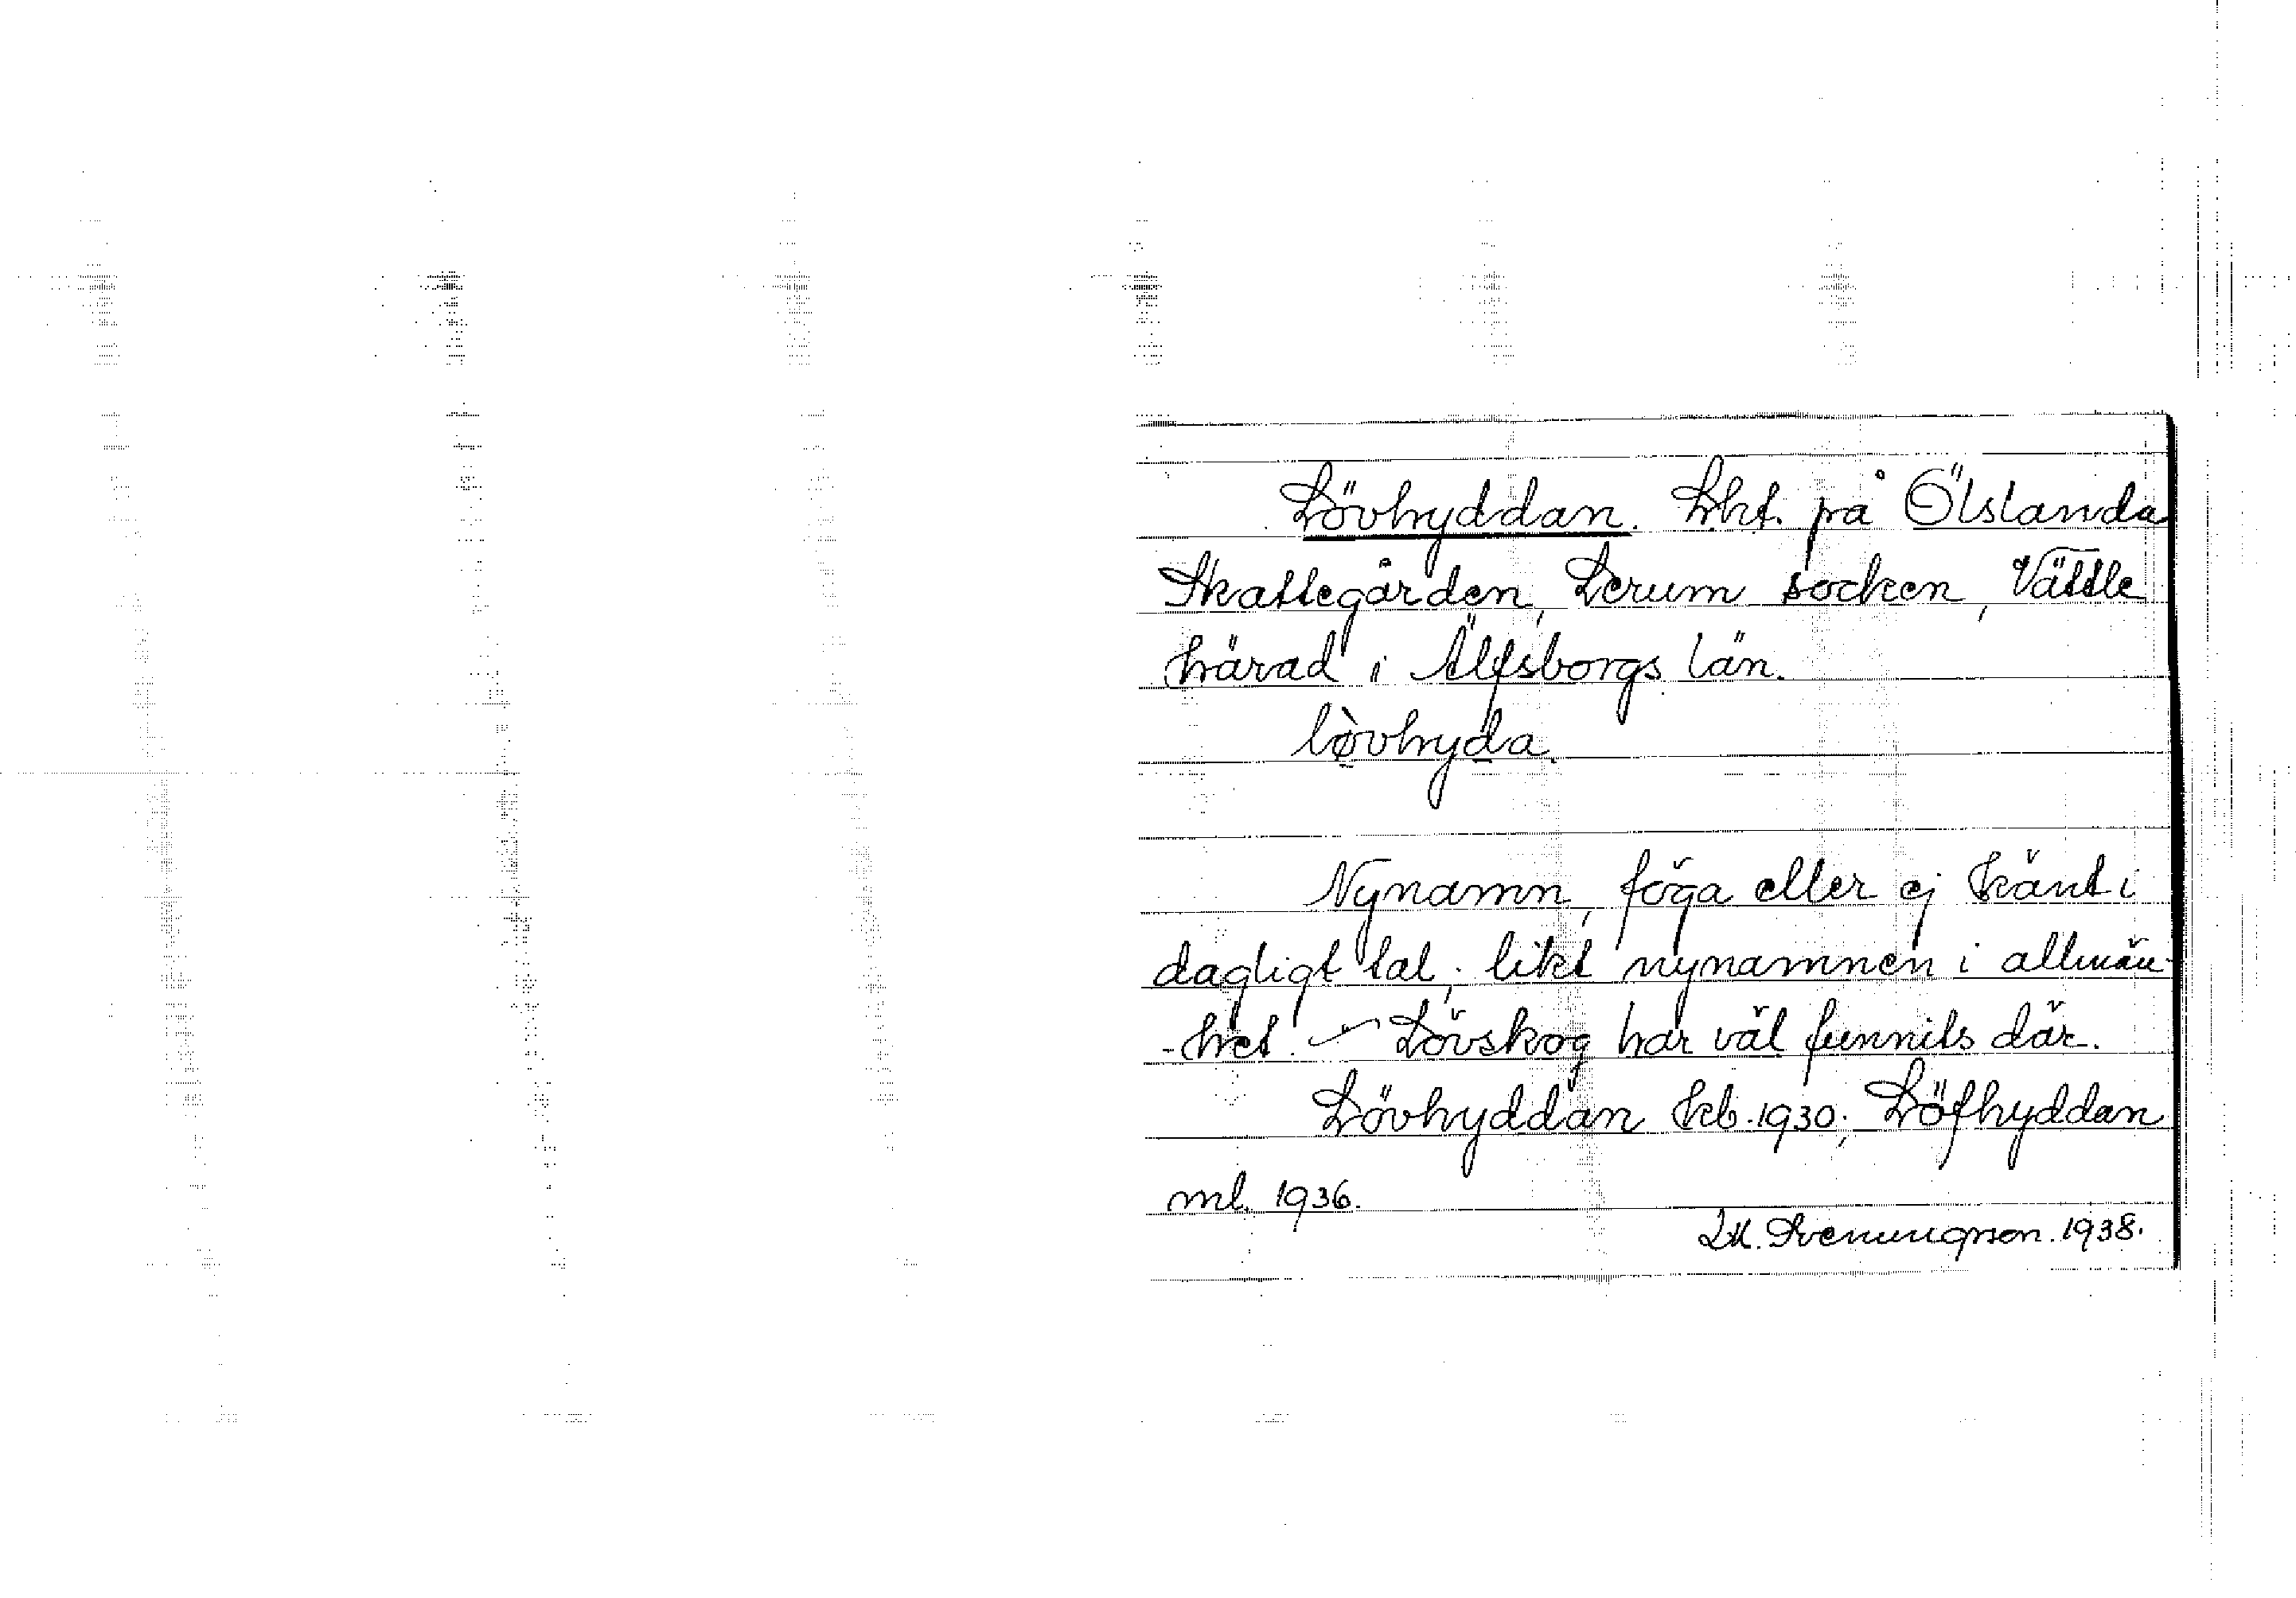 Lövhyddan. Lht. på Ölslanda
Skattegården, Lerum socken, Vättle
härad i Älfsborgs län.
lòvhyda.
Nynamn, föga eller ej känt i
dagligt tal, likt nynamnen i allmän-
-het. – Lövskog har väl funnits där.
Lövhyddan kb. 1930; Löfhyddan
ml. 1936.
Svenungson. 1938.